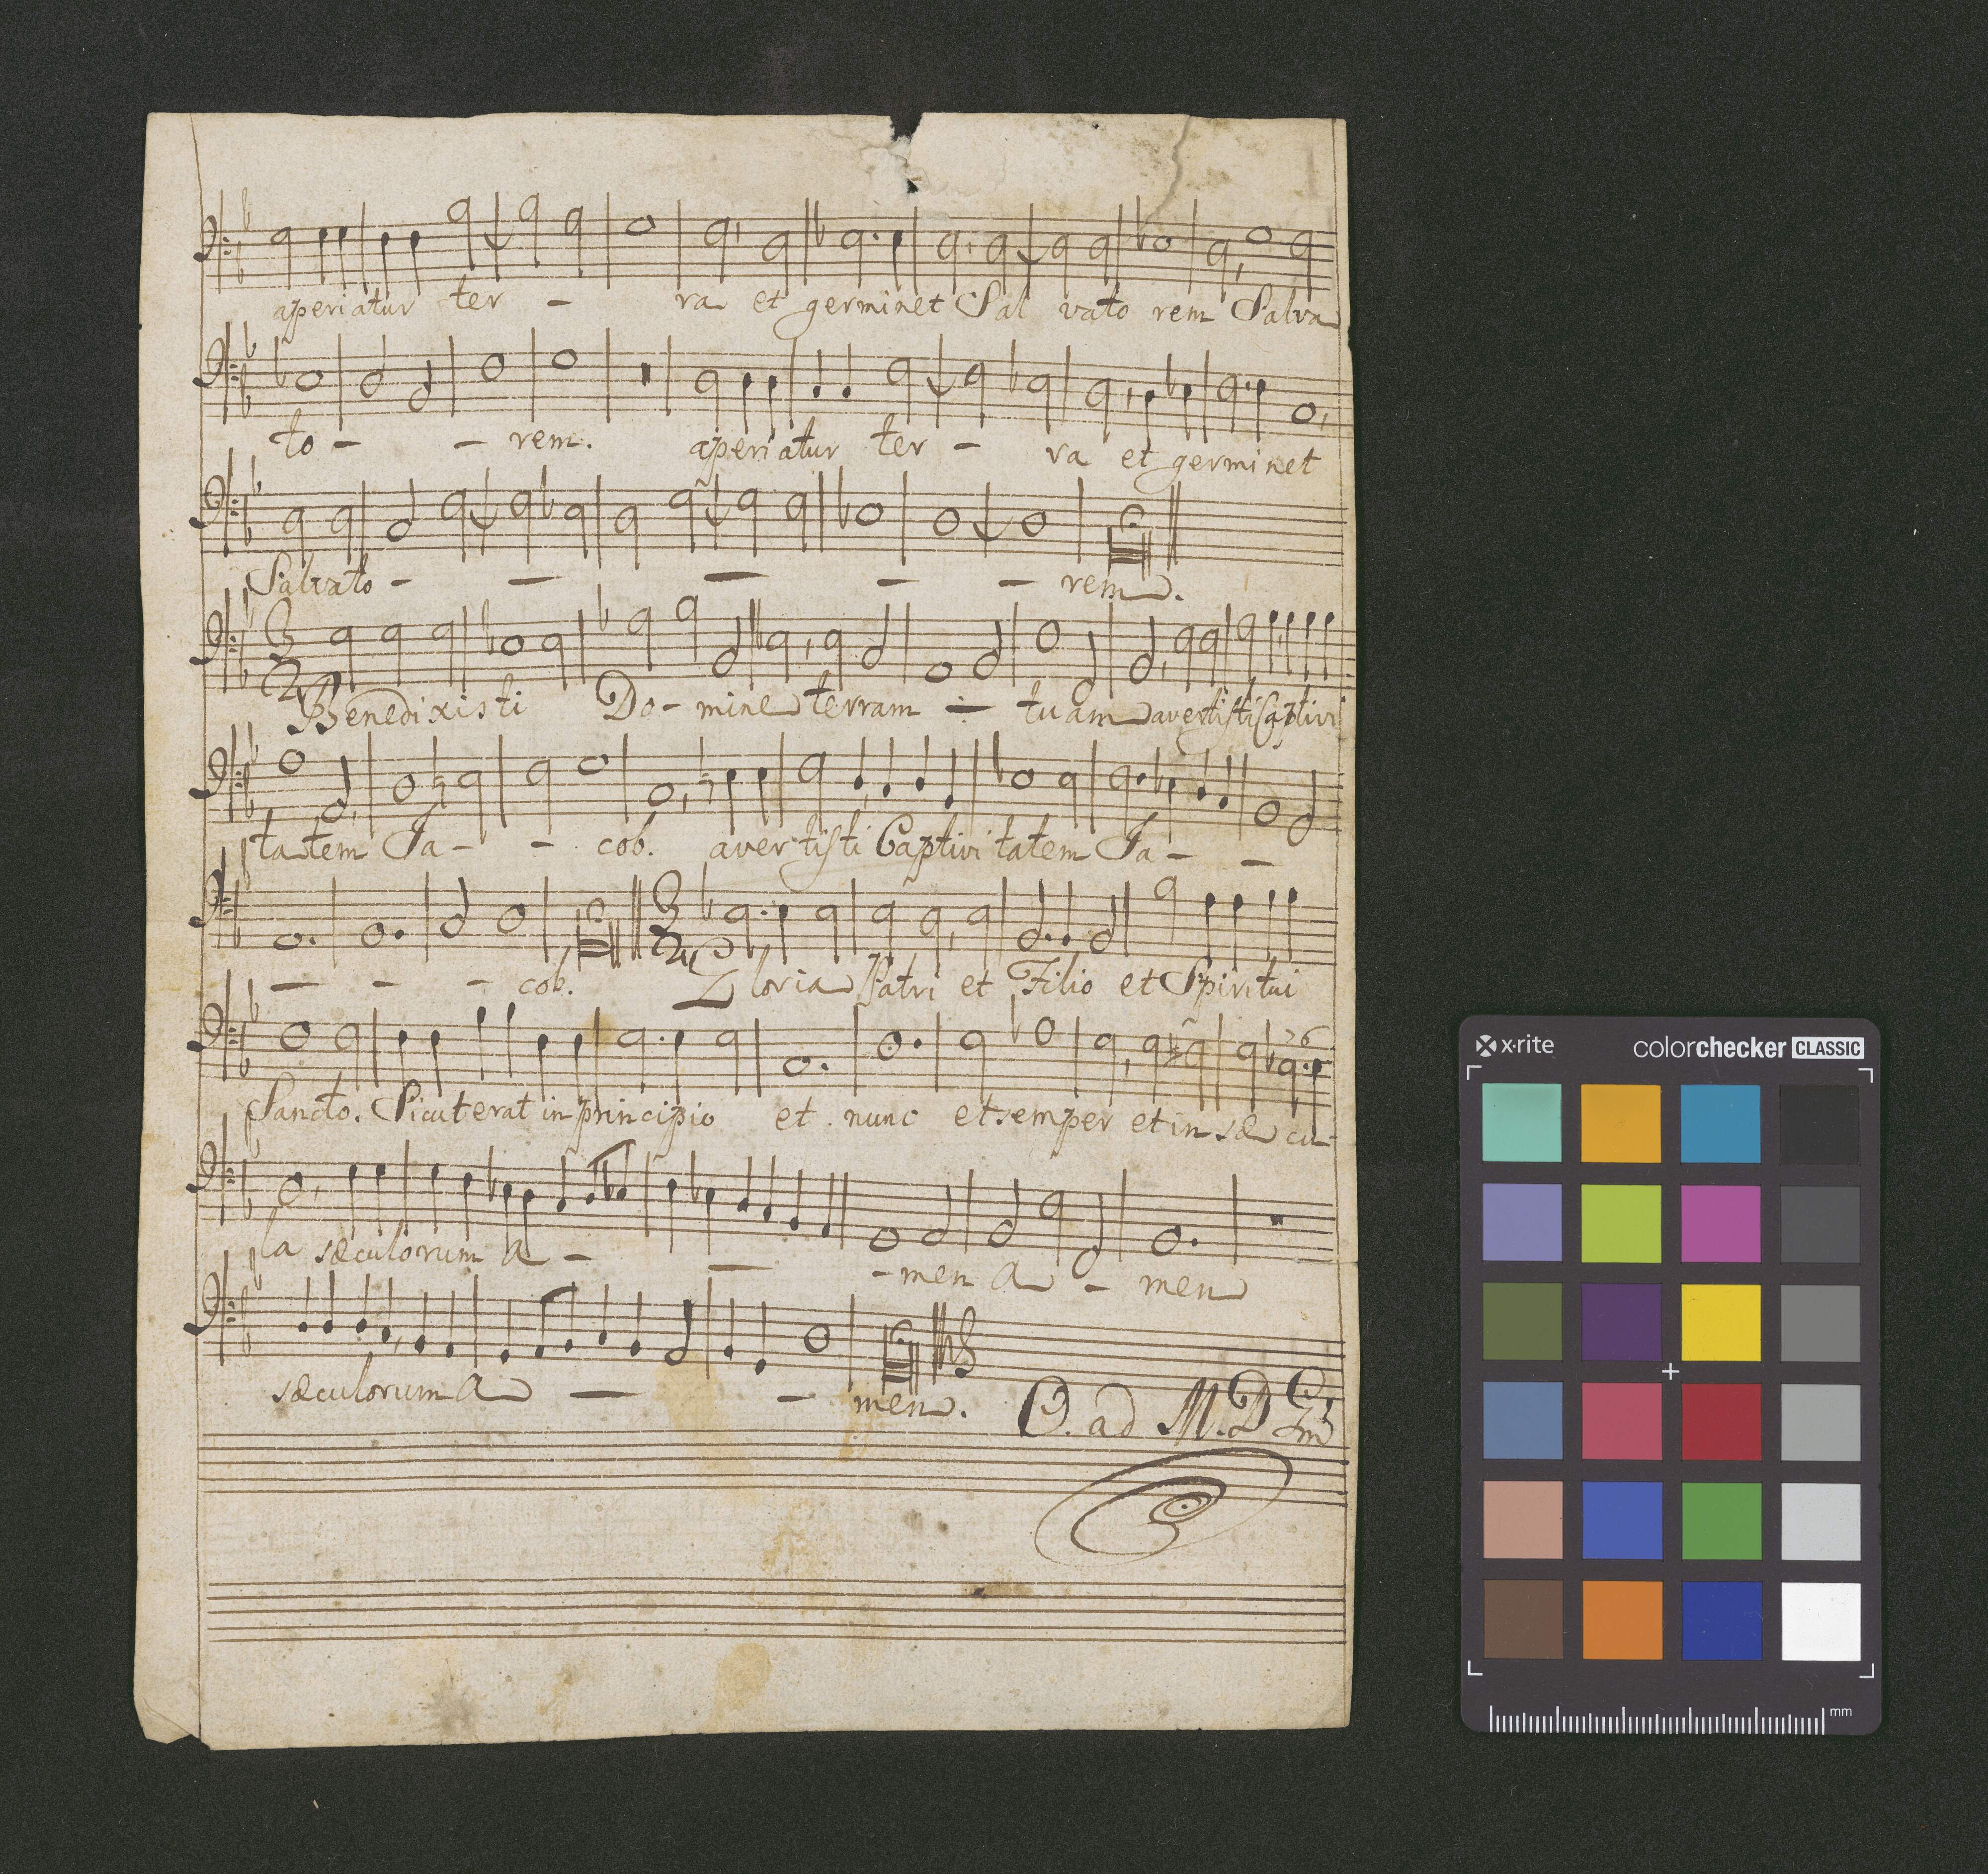 aperiatur ter - ra et germinet Sal vato rem Salva
to - - rem. aperiatur ter - ra et germinet
Salvato - - - - - rem.
Benedixisti Do - mine terram - tuam avertisti Captivi
tatem Ja - - cob. avertisti Captivitatem Ja - -
- - - cob. Gloria Patri et Filio et Spiritui
Sancto. Sicut erat in principio et nunc et semper et in sæ cu
76
la sæculorum a - - - men a - men
sæculorum a - - men. O. ad M. D
x·rite colorchecker CLASSIC
mm